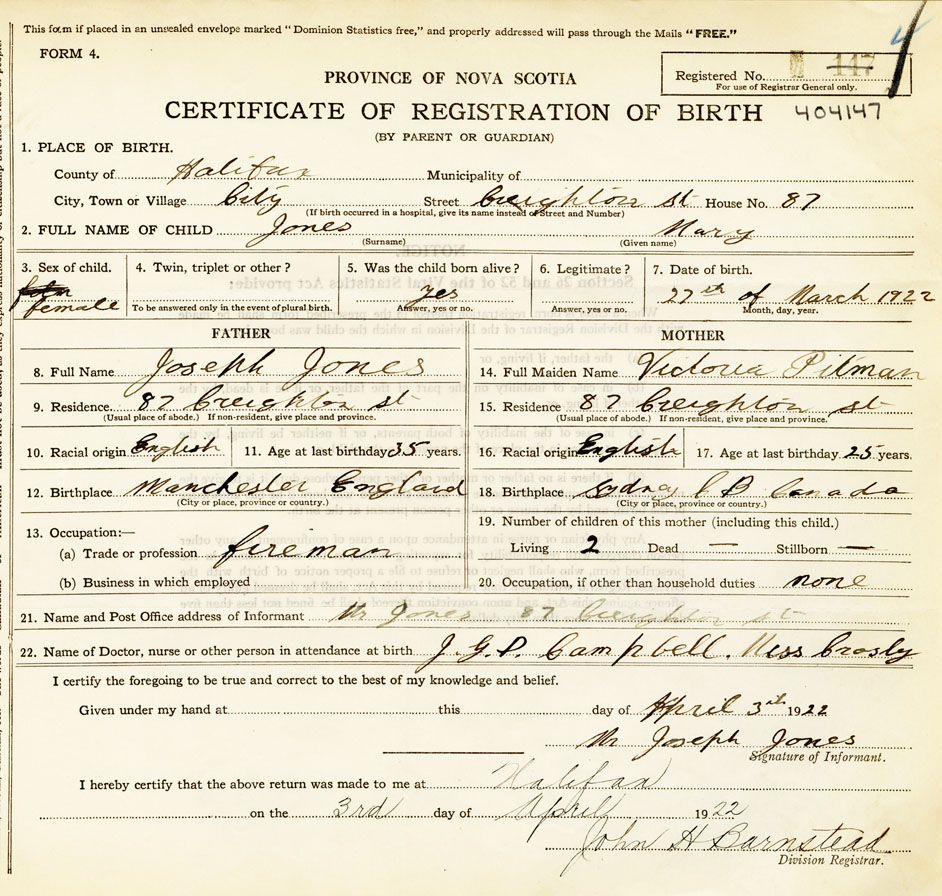 This form if placed in an unsealed envelope marked "Dominion Statistics free," and properly addressed will pass through the Mails "FREE."
4
FORM 4.
PROVINCE OF NOVA SCOTIA
Registered No. 147
For use of Registrar General only.
CERTIFICATE OF REGISTRATION OF BIRTH 404147
(BY PARENT OR GUARDIAN)
1. PLACE OF BIRTH.
County of Halifax Municipality of
City, Town or Village City Street Creighton St House No. 87
(If birth occurred in a hospital, give its name instead of Street and Number)
2. FULL NAME OF CHILD Jones Mary
(Surname) (Given name)
3. Sex of child. 4. Twin, triplet or other? 5. Was the child born alive? 6. Legitimate? 7. Date of birth.
female yes 27th of March 1922
To be answered only in the event of plural birth. Answer, yes or no. Answer, yes or no. Month, day, year.
FATHER MOTHER
8. Full Name Joseph Jones 14. Full Maiden Name Victoria Pitman
9. Residence. 87 Creighton st 15. Residence 87 Creighton st
(Usual place of abode.) If non-resident, give place and province. (Usual place of abode.) If non-resident, give place and province.
10. Racial origin English 11. Age at last birthday 35 years. 16. Racial origin English 17. Age at last birthday 25 years.
12. Birthplace Manchester England 18. Birthplace Sydney C B Canada
(City or place, province or country.) (City or place, province or country.)
13. Occupation:— 19. Number of children of this mother (including this child.)
(a) Trade or profession fireman Living 2 Dead — Stillborn —
(b) Business in which employed 20. Occupation, if other than household duties none
21. Name and Post Office address of Informant Mr Jones 87 Creighton st
22. Name of Doctor, nurse or other person in attendance at birth J.G.D. Campbell. Miss Crosby
I certify the foregoing to be true and correct to the best of my knowledge and belief.
Given under my hand at this day of April 3rd 1922
Mr Joseph Jones
Signature of Informant.
I hereby certify that the above return was made to me at Halifax
on the 3rd day of April 1922
John H Barnstead
Division Registrar.